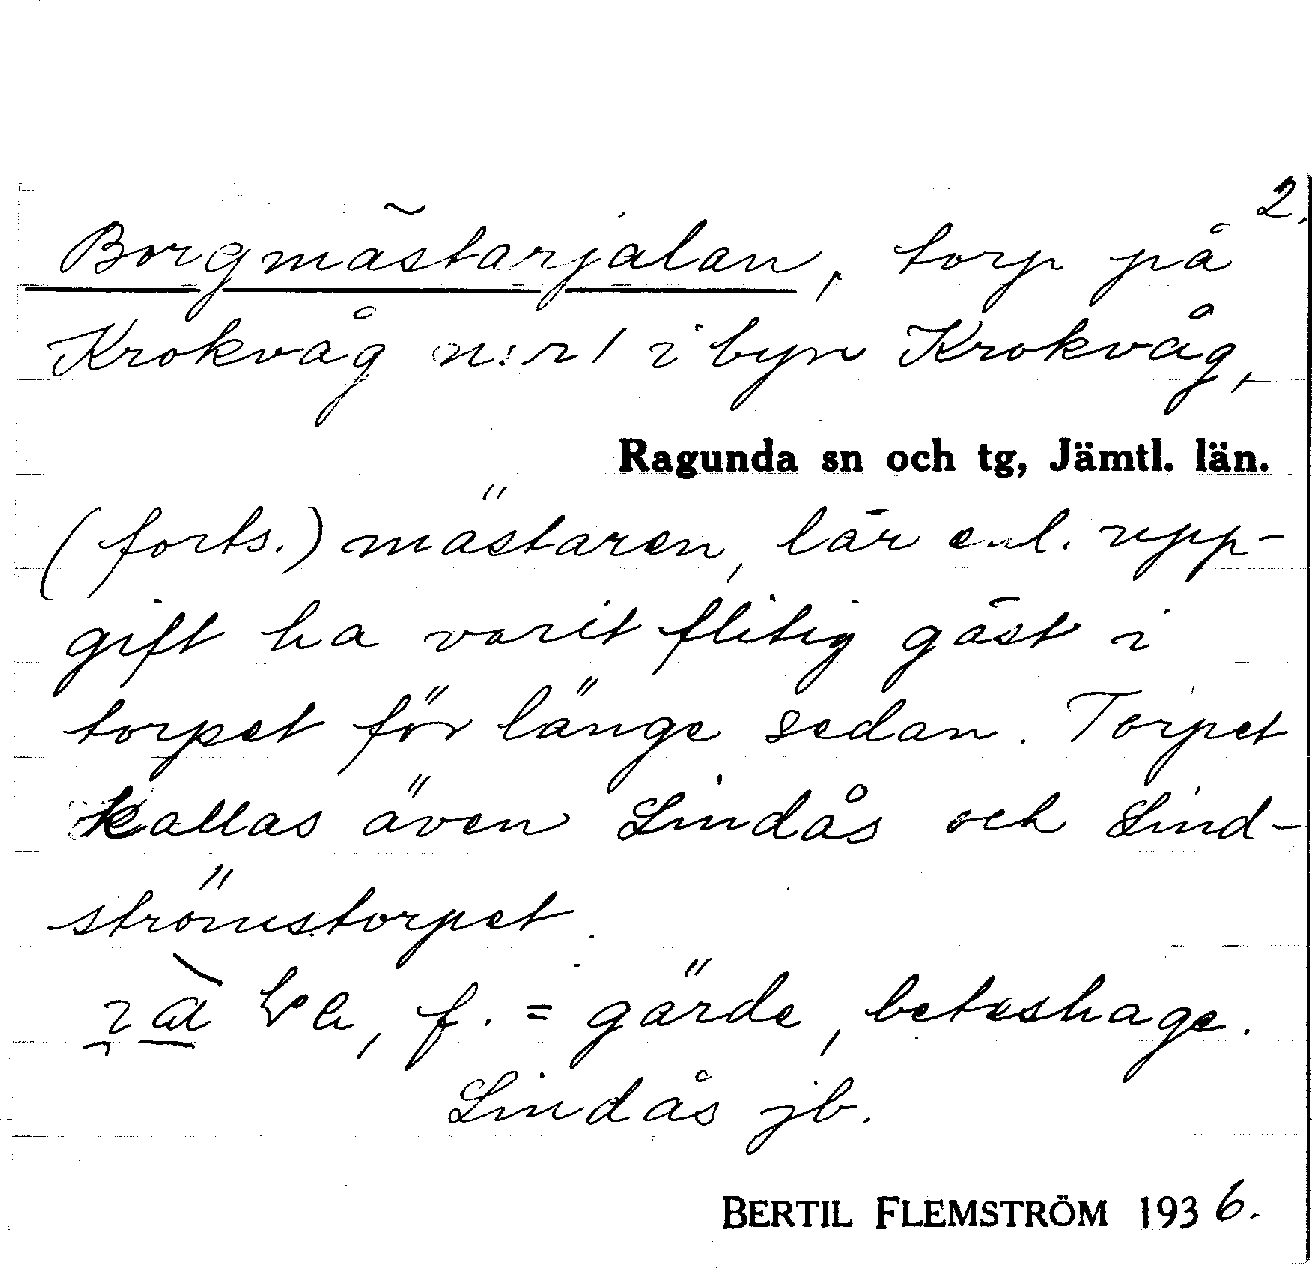 2.
Borgmästarjalan, torp på
Krokvåg n:r 1 i byn Krokvåg,
Ragunda sn och tg, Jämtl. län.
(forts.) mästaren, lär enl. upp-
gift ha varit flitig gäst i
torpet för länge sedan. Torpet
kallas även Lindås och Lind-
strömstorpet.
f. = gärde, beteshage.
Lindås jb.
BERTIL FLEMSTRÖM 1936.